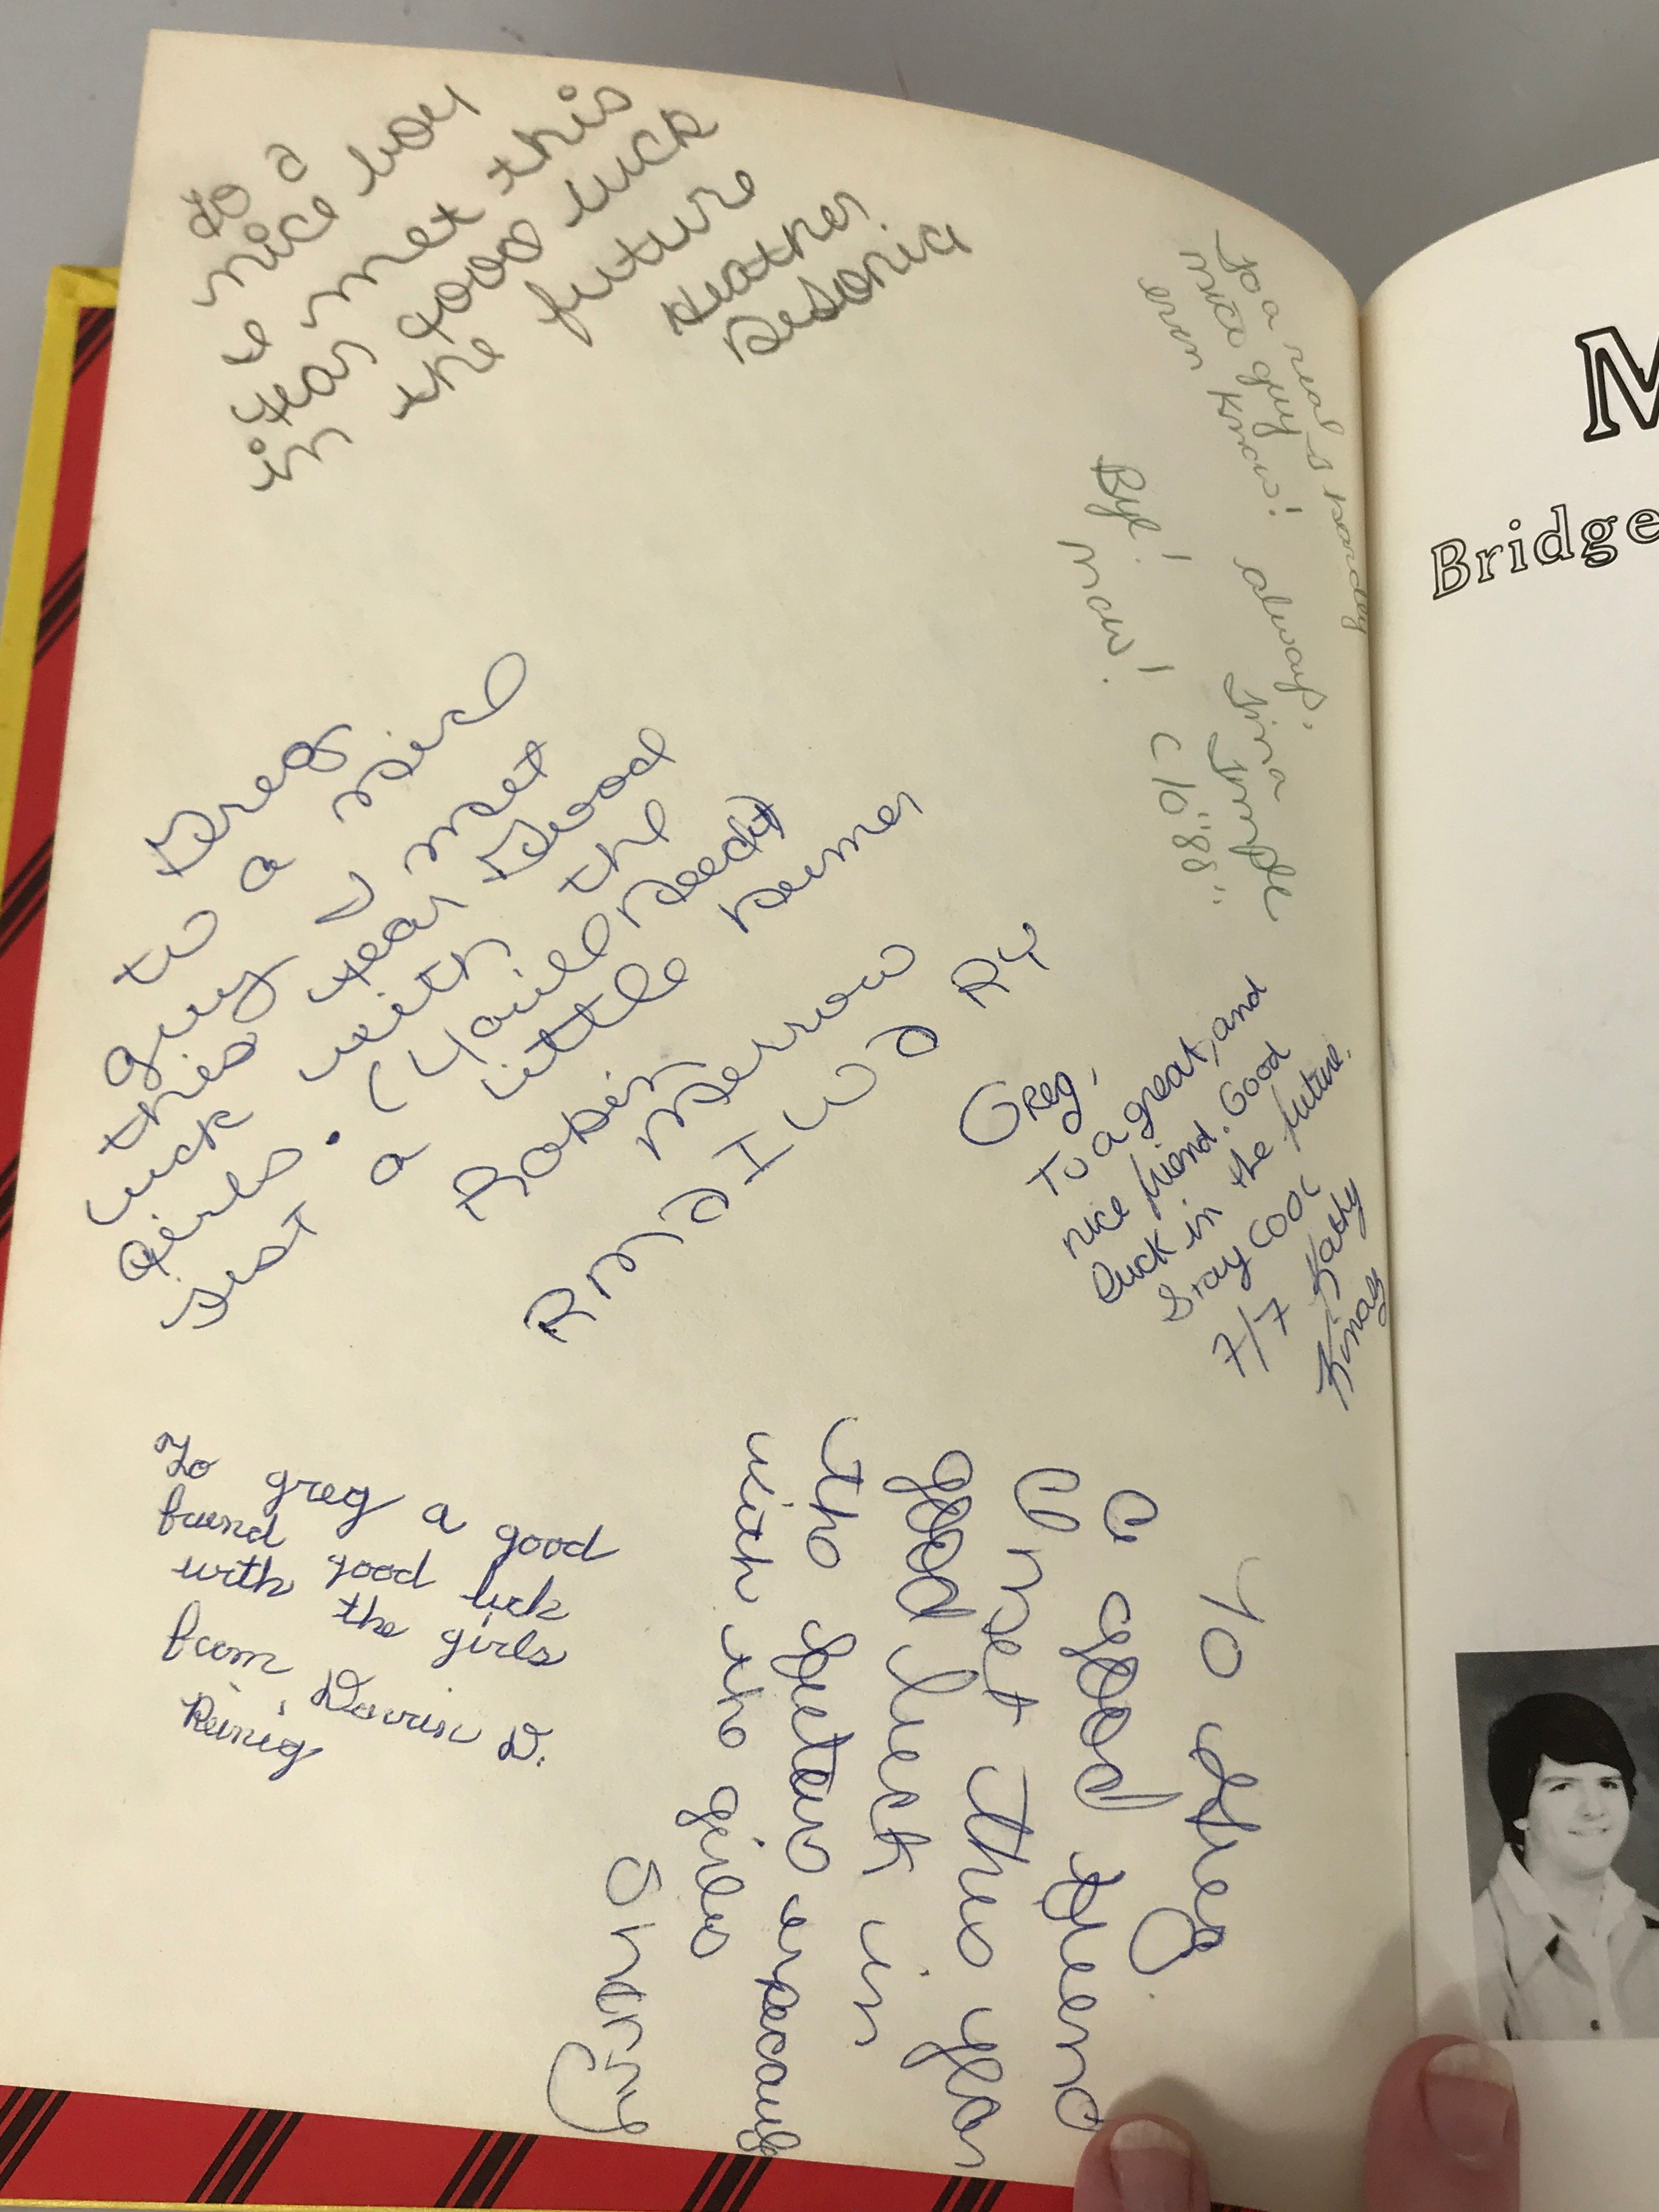 to a
nice boy
ie met this
year good luck
in the future
Heather
Desonia
To a real & sandey
nice guy
ever know!
always,
Tina
Bye!
now!
C/O "88"
Greg
to a nice
guy I met
this year Good
luck with the
girls. (You'll need it)
Just a little humer
Robin
Merrow
RMAIWARY
Greg,
To a great, and
nice friend. Good
luck in the future.
Stay Cool
7/7 Kathy
King
To greg a good
friend good luck
with the girls
from Darrin D.
Reinig
To Greg
a good friend
I met this year
good luck in
the futuro
with the girls
M
Bridge